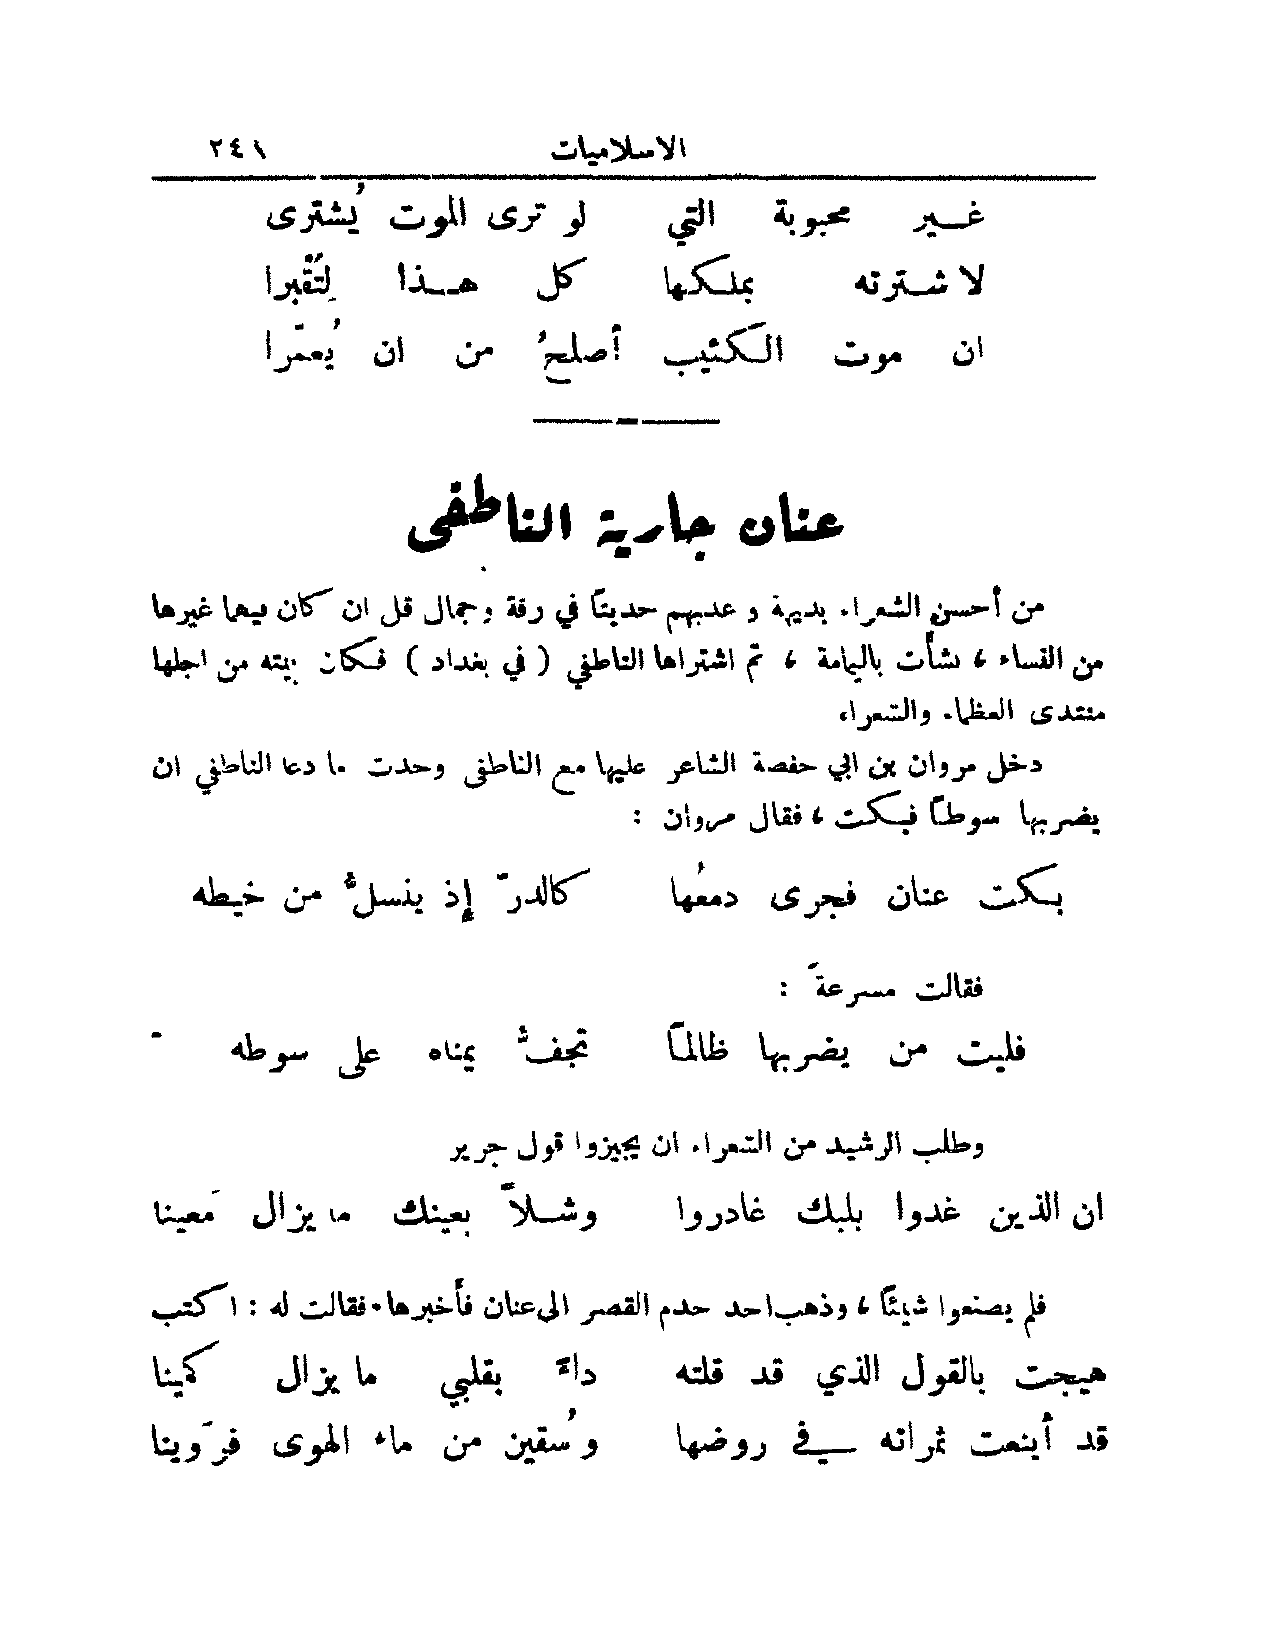 الاسلاميات ٢٤١
غير محبوبة التي لو ترى الموت يُشترى
لاشترته بملكها كل هذا لِتُقبرا
ان موت الكئيب أصلحُ من ان يُعمّرا
عنان جارية الناطفى
من أحسن الشعراء بديهة و عذبهم حديثاً في رقة وجمال قل ان كان فيها غيرها
من النساء ، نشأت باليامة ، ثم اشتراها الناطفي ( في بغداد ) فكان بيته من اجلها
منتدى العظماء والشعراء
دخل مروان بن ابي حفصة الشاعر عليها مع الناطفى وحدت ما دعا الناطفي ان
يضربها سوطاً فبكت ، فقال مروان :
بكت عنان فجرى دمعُها كالدرّ إذ ينسلُّ من خيطه
فقالت مسرعةً :
فليت من يضربها ظالماً تجفُّ يمناه على سوطه
وطلب الرشيد من الشعراء ان يجيزوا قول جرير
ان الذين غدوا بلبك غادروا وشلاً بعينك ما يزال مَعينا
فلم يصنعوا شيئاً ، وذهب احد خدم القصر الى عنان فأخبرها . فقالت له : اكتب
هيجت بالقول الذي قد قلته داءً بقلبي ما يزال كمينا
قد أينعت ثمراته في روضها وسُقين من ماء الهوى فرَوينا